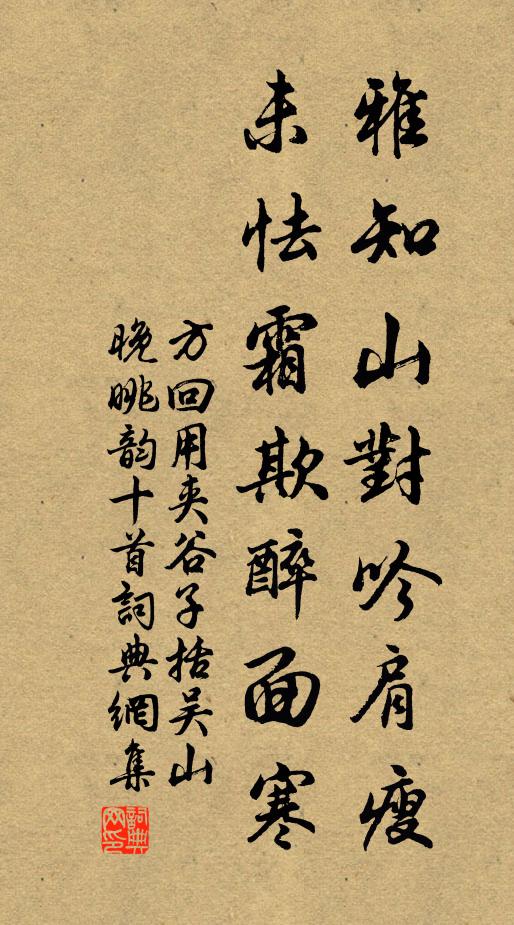 雅知山對吟肩瘦
未怯霜欺醉面寒
方回用夾谷子括吴山
晚眺韵十首詞典網集
詞典
网印